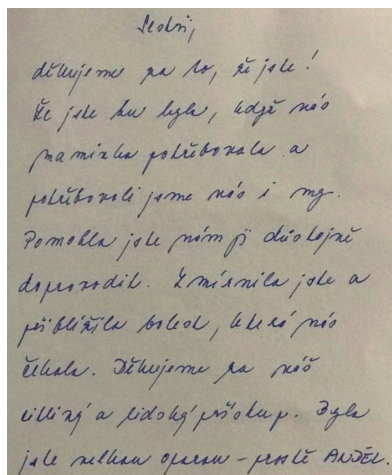 Sestři,
děkujeme za to, že jste!
Že jste tu byla, když nás
maminka potřebovala a
potřebovali jsme vás i my.
Pomohla jste nám ji důstojně
doprovodit. Zmírnila jste a
přiblížila bolest, která nás
čekala. Děkujeme za váš
citlivý a lidský přístup. Byla
jste velkou oporou – prostě ANDĚL.